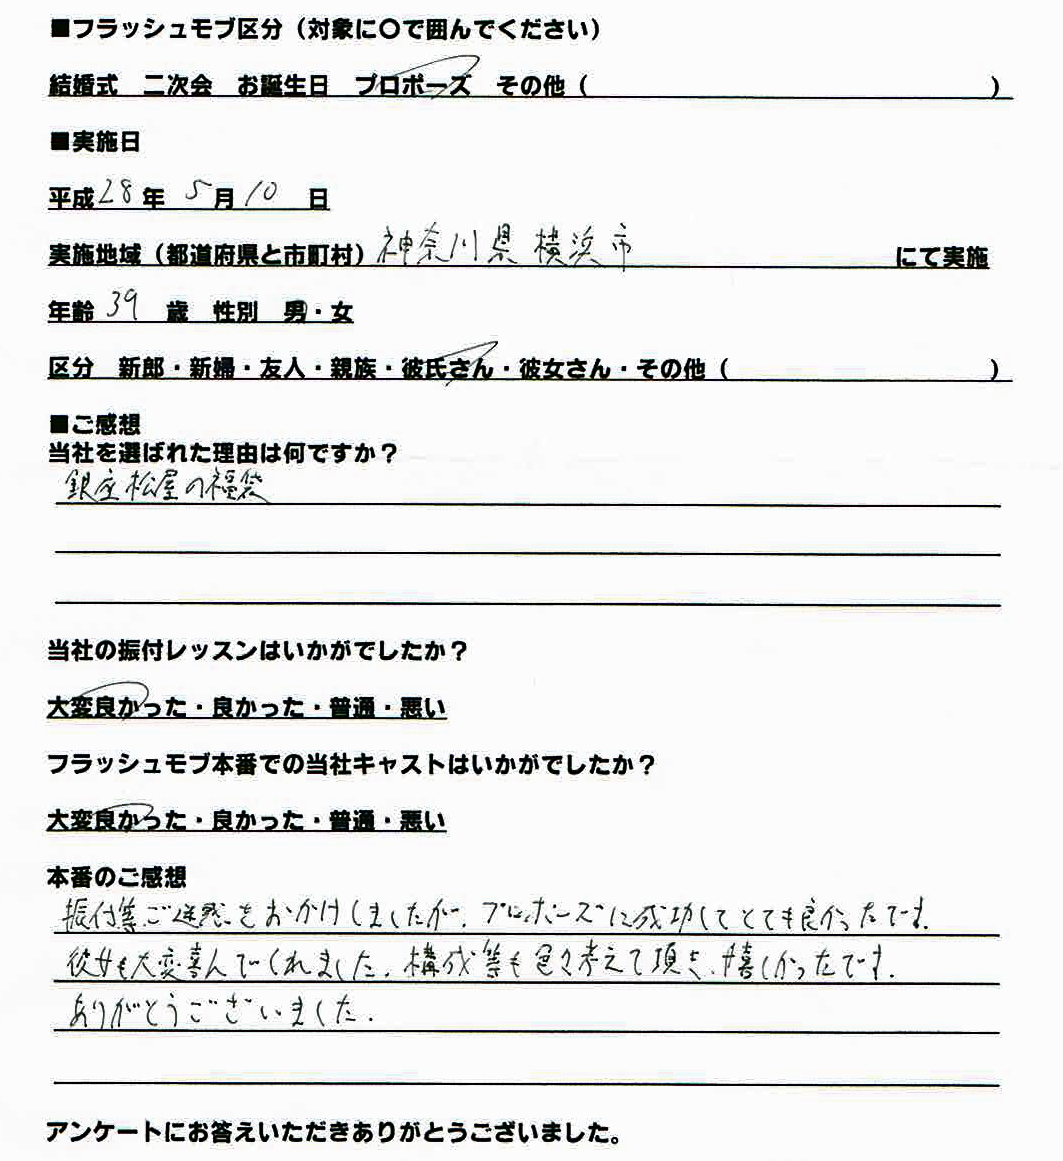 ■フラッシュモブ区分（対象に〇で囲んでください）
結婚式　二次会　お誕生日　プロポーズ　その他（　　　　）
■実施日
平成28年 5月10 日
実施地域（都道府県と市町村）神奈川県横浜市　にて実施
年齢 39 歳　性別　男・女
区分　新郎・新婦・友人・親族・彼氏さん・彼女さん・その他（　　　　）
■ご感想
当社を選ばれた理由は何ですか？
銀座松屋の福袋
当社の振付レッスンはいかがでしたか？
大変良かった・良かった・普通・悪い
フラッシュモブ本番での当社キャストはいかがでしたか？
大変良かった・良かった・普通・悪い
本番のご感想
振付等ご迷惑をおかけしましたが、プロポーズに成功してとても良かったです。
彼女も大変喜んでくれました。構成等も色々考えて頂き、嬉しかったです。
ありがとうございました。
アンケートにお答えいただきありがとうございました。